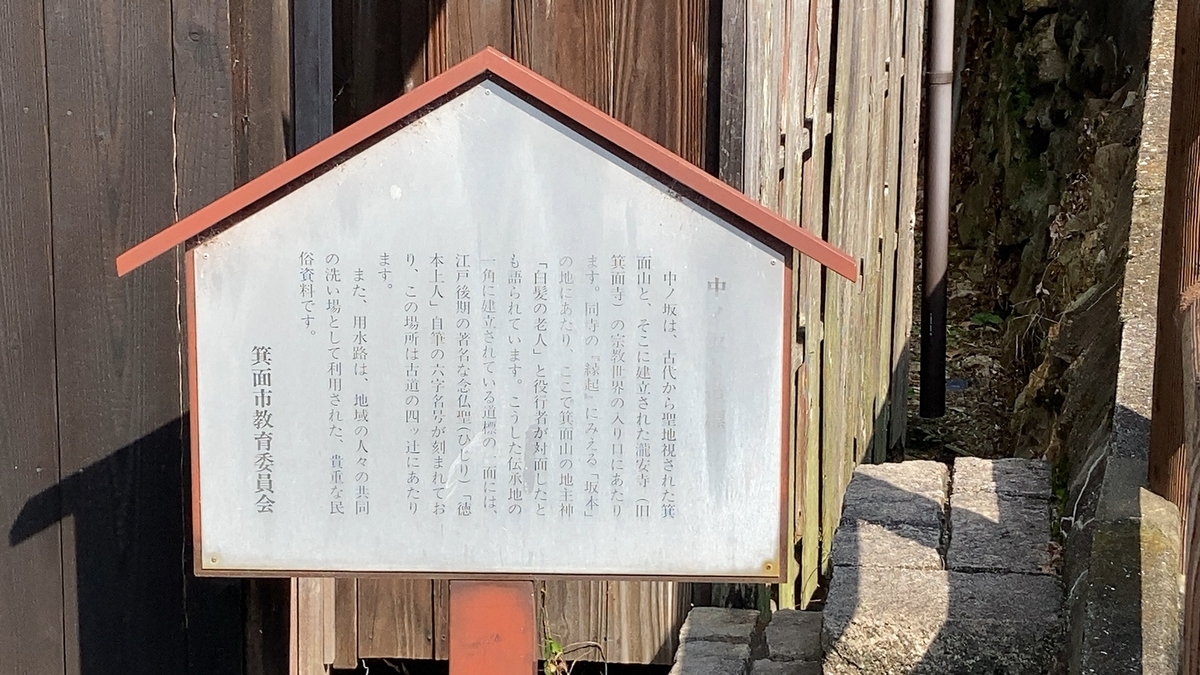 中ノ
中ノ坂は、古代から聖地視された箕
面山と、そこに建立された瀧安寺（旧
箕面寺）の宗教世界の入り口にあたり
ます。同寺の『縁起』にみえる「坂本」
の地にあたり、ここで箕面山の地主神
「白髪の老人」と役行者が対面したと
も語られています。こうした伝承地の
一角に建立されている道標の一面には、
江戸後期の著名な念仏聖（ひじり）「徳
本上人」自筆の六字名号が刻まれてお
り、この場所は古道の四ッ辻にあたり
ます。
また、用水路は、地域の人々の共同
の洗い場として利用された、貴重な民
俗資料です。
箕面市教育委員会